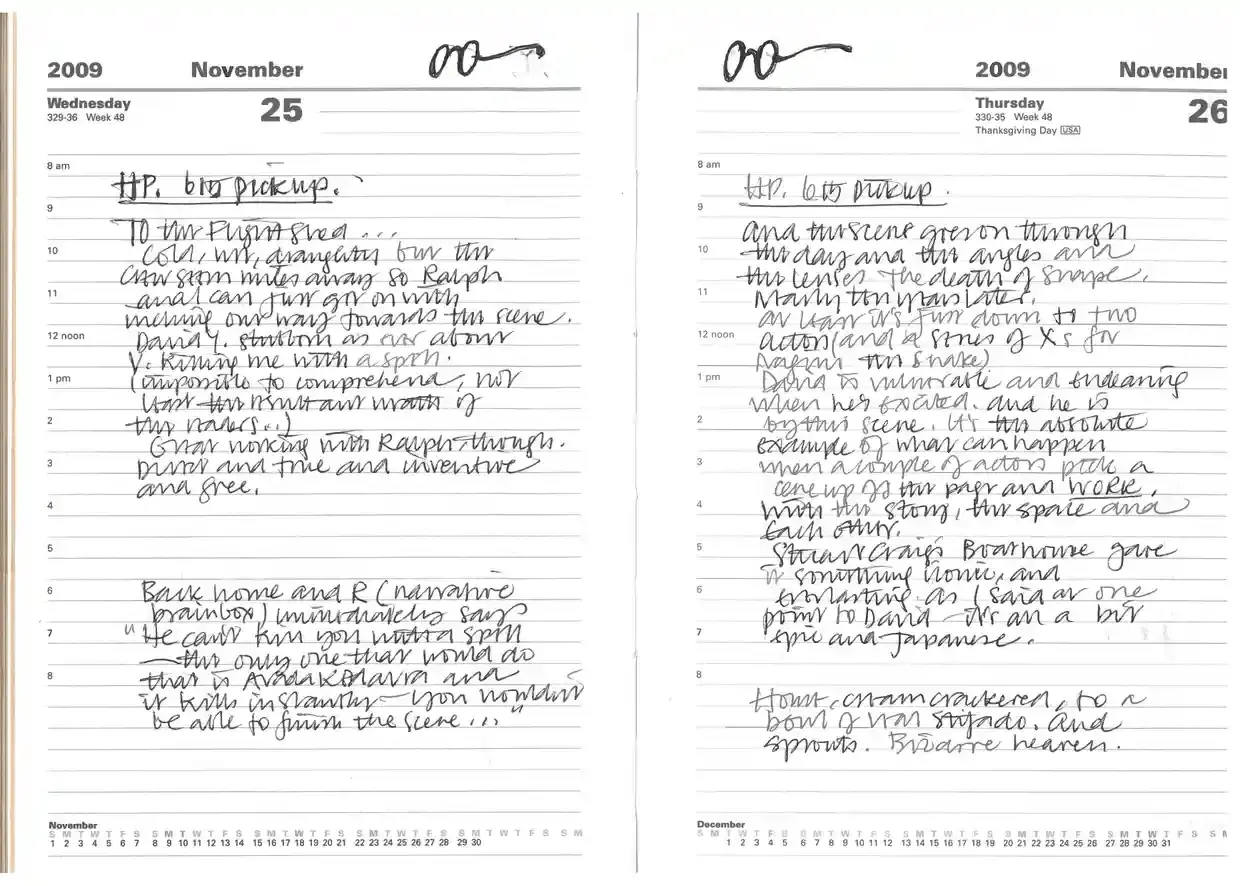 2009 November
Wednesday 25
329-36 Week 48
8 am
HP. 6.15 pickup.
9
To the Flight Shed ...
10
Cold, wet, draughty but the
crew seem miles away so Ralph
11
and I can just get on with
inching our way towards the scene.
12 noon
David Y. stubborn as ever about
V. killing me with a spell.
1 pm
(impossible to comprehend, not
least the resultant wrath of
2
the readers..)
Great working with Ralph though.
3
Direct and true and inventive
and free.
4
5
6
Back home and R (narrative
brainbox) immediately says
7
"He can't kill you with a spell
– the only one that would do
8
that is Avada Kedavra and
it kills instantly – you wouldn't
be able to finish the scene ..."
November
S M T W T F S S M T W T F S S M T W T F S S M T W T F S S M T W T F S S M
1 2 3 4 5 6 7 8 9 10 11 12 13 14 15 16 17 18 19 20 21 22 23 24 25 26 27 28 29 30
2009 November
Thursday 26
330-35 Week 48
Thanksgiving Day USA
8 am
HP. 6.15 pickup.
9
And the scene goes on through
10
the day and the angles and
the lenses. The death of Snape.
11
Nearly ten years later.
At least it's just down to two
12 noon
actors (and a series of Xs for
Nagini the Snake)
1 pm
David is vulnerable and endearing
when he's excited. And he is
2
by this scene. It's the absolute
example of what can happen
3
when a couple of actors pick a
scene up off the page and WORK.
4
With the story, the space and
each other.
5
Stuart Craig's Boathouse gave
it something ironic, and
6
everlasting. As I said at one
point to David – it's all a bit
7
epic and Japanese.
8
Home, cream crackered, to a
bowl of veal stifado. And
sprouts. Bizarre heaven.
December
S M T W T F S S M T W T F S S M T W T F S S M T W T F S S M T W T F S S M
1 2 3 4 5 6 7 8 9 10 11 12 13 14 15 16 17 18 19 20 21 22 23 24 25 26 27 28 29 30 31